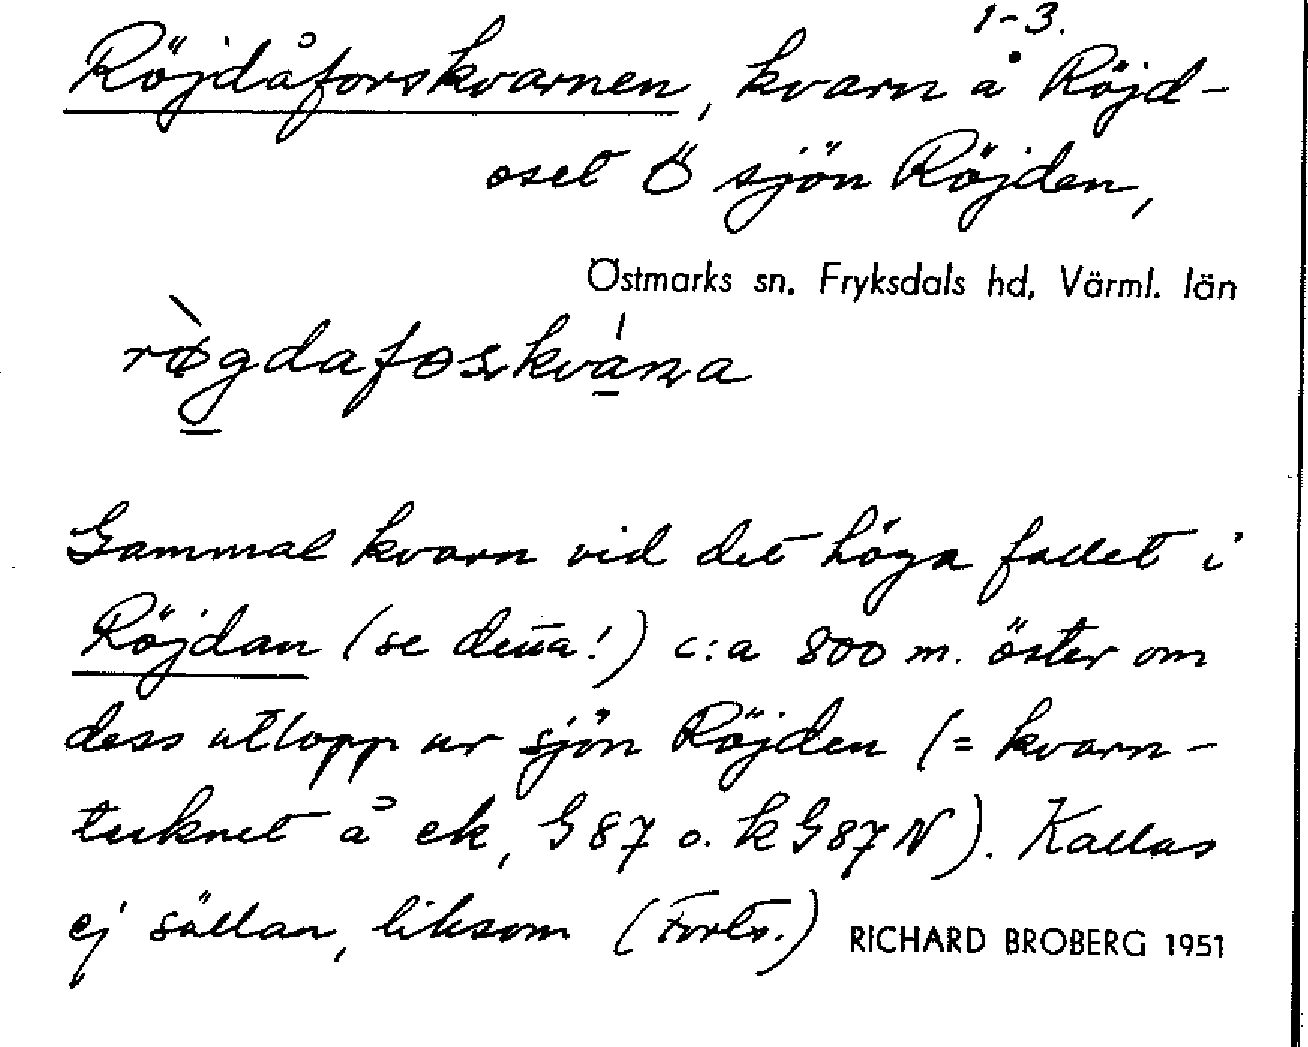 1-3.
Röjdåforskvarnen, kvarn å Röjd-
oset Ö sjön Röjden,
Östmarks sn. Fryksdals hd, Värml. län
rø̀gdafoskvána
Gammal kvarn vid det höga fallet i
Röjdan (se denna!) c:a 800 m. öster om
dess utlopp ur sjön Röjden (= kvarn-
tecknet å ek, G87 o. kG87N). Kallas
ej sällan, liksom (Forts.) RICHARD BROBERG 1951